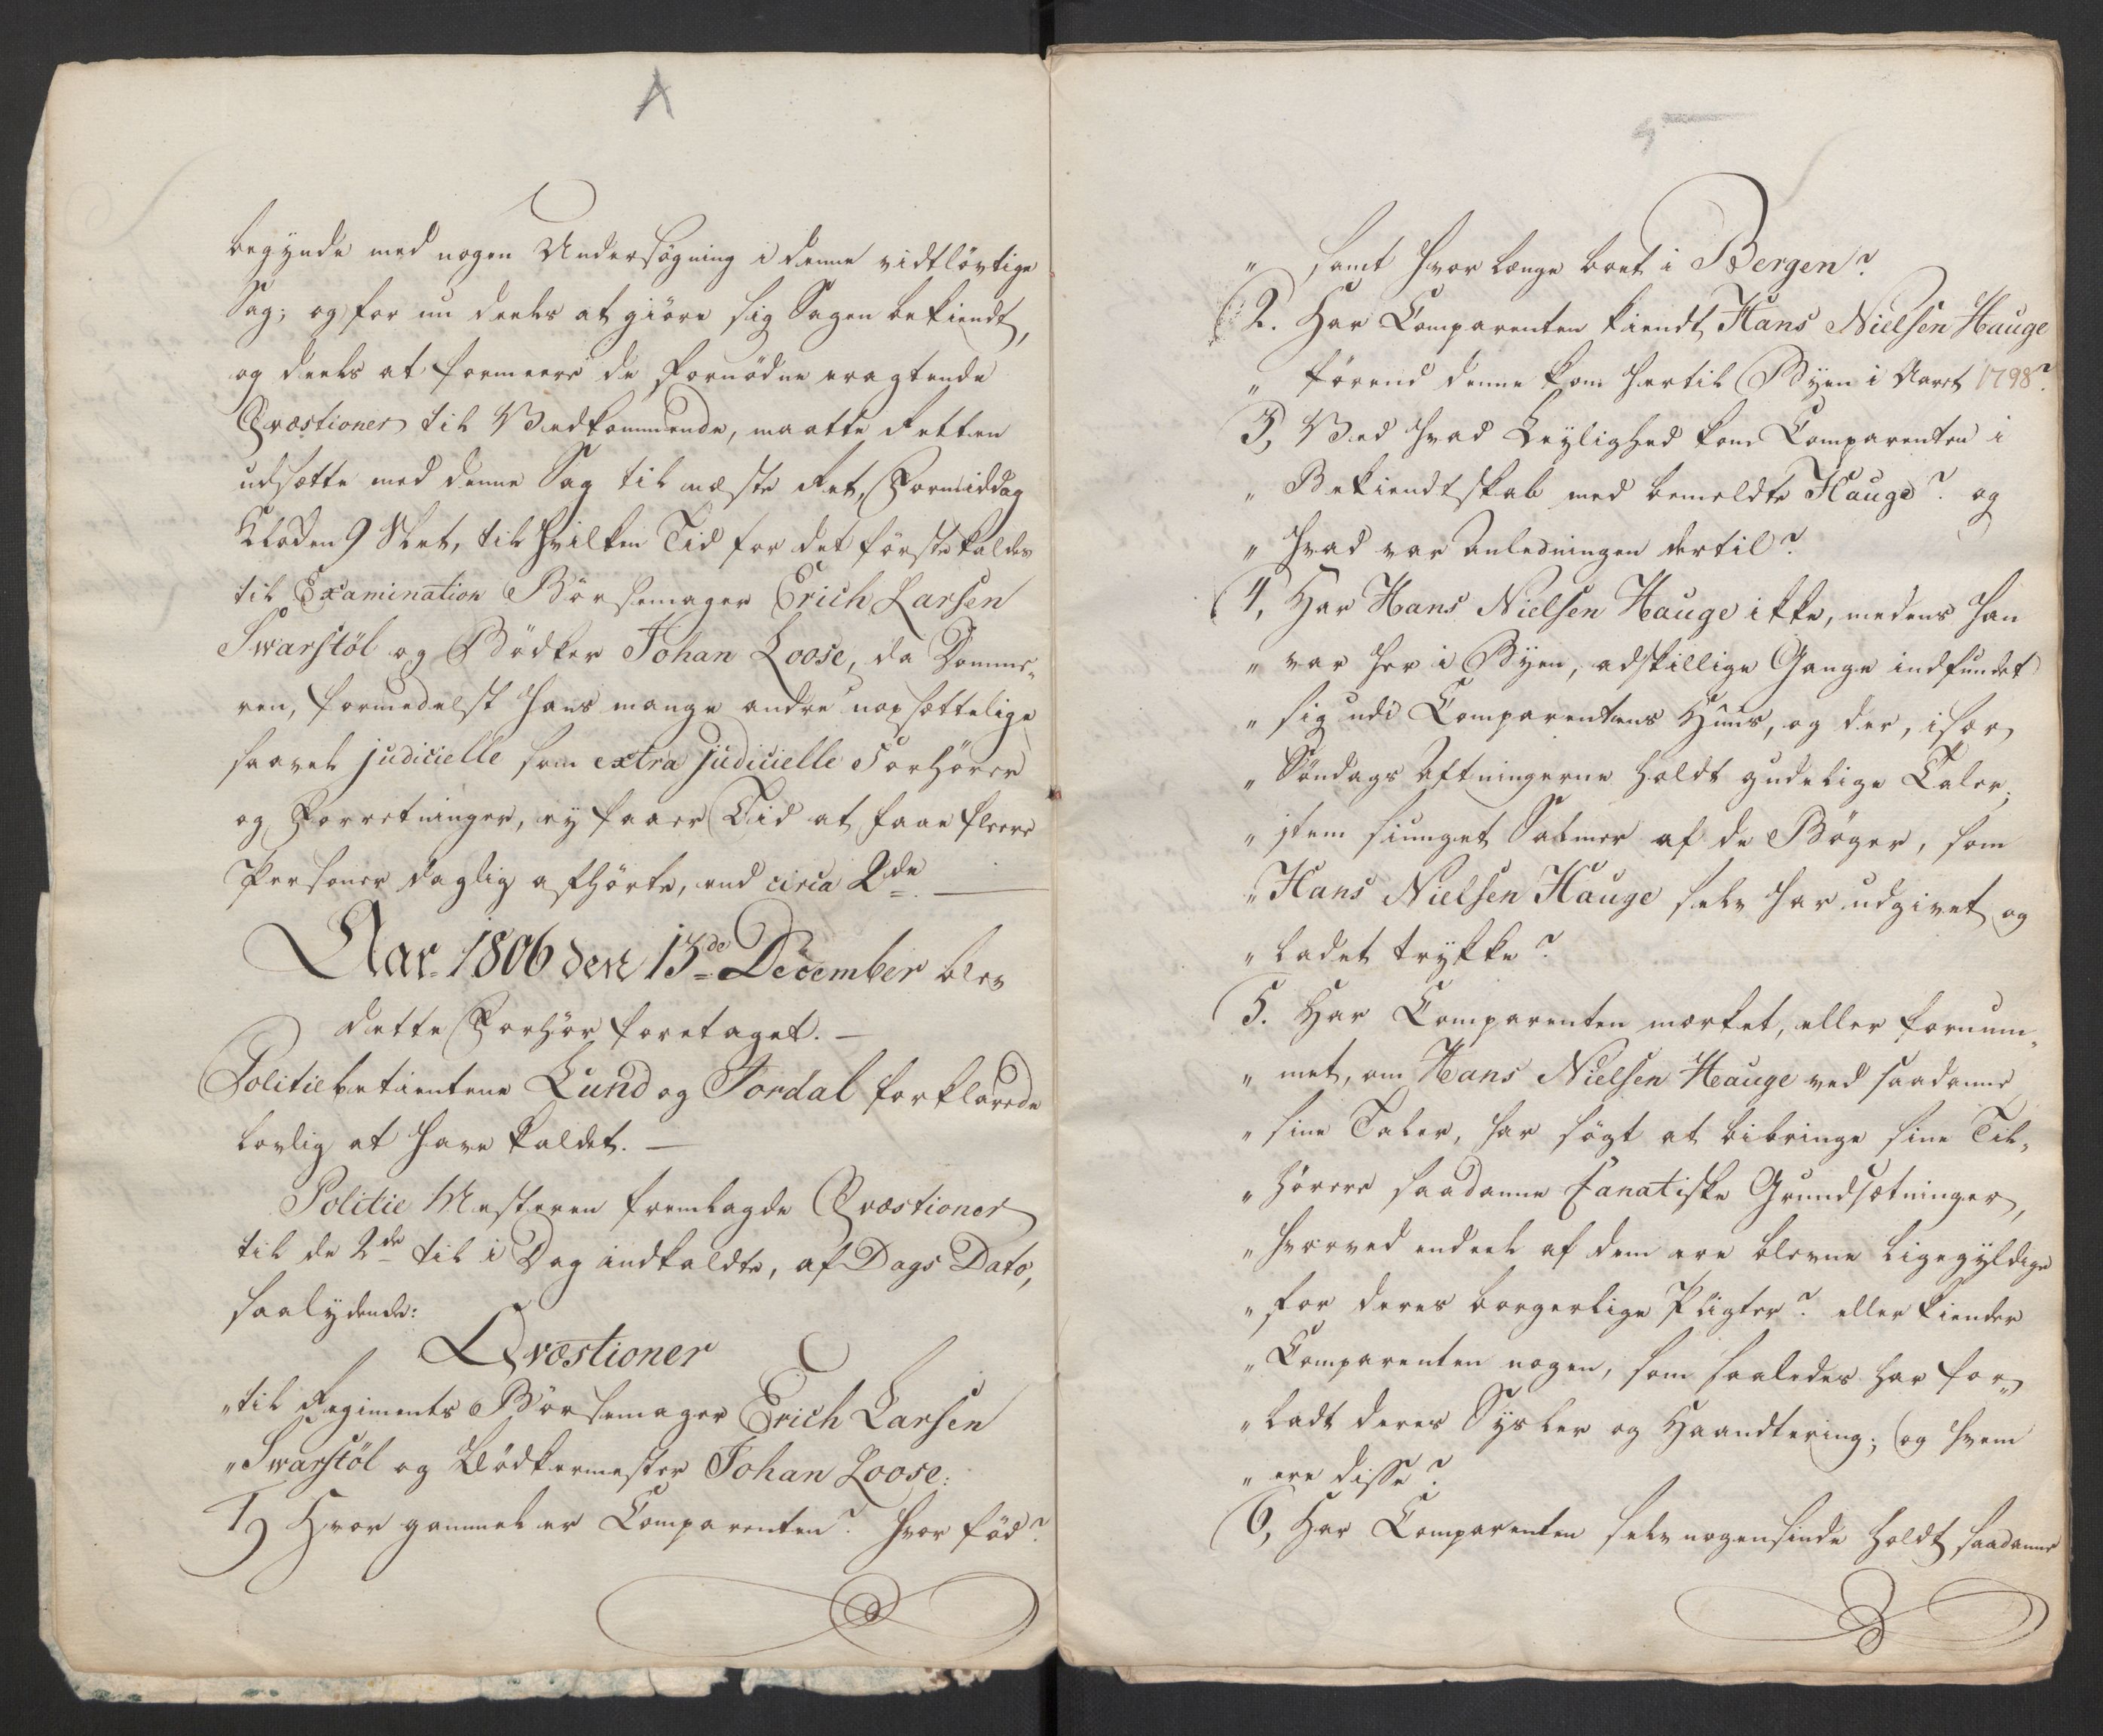 A
begynde med nogen Undersøgning i denne vidtløvtige
Sag; og for nu deels at giöre sig Sagen bekiendt,
og deels at formeere de fornödne eragtende
Qvæstioner til Vedkommende, maatte Retten
udsætte med denne Sag til næste Ret, Formiddag
Kloken 9 Slet, til hvilken Tid for det förste kaldes
til Examination Börsemager Erich Larsen
Swarstöl og Bödker Johan Loose, da Domme-
ren, formedelst hans mange andre uopsættelige
saavel judicielle som extra judicielle Forhörer
og Forretninger, ey faaer Tid at faae fleere
Personer daglig afhörte, end circa 2de
Aar 1806 den 13de December blev
dette Forhör foretaget. —
Politiebetientene Lund og Jordal forklarede
lovlig at have kaldet. —
Politie Mesteren fremlagde Qvæstioner
til de 2de til i Dag indkaldte, af Dags Dato,
saalydende:
Qvæstioner
„til Regiments Börsemager Erich Larsen
„Swarstöl og Bödkermester Johan Loose:
1, Hvor gammel er Comparenten? hvor föd?
5
„ samt hvor længe boet i Bergen?
2. Har Comparenten kiendt Hans Nielsen Hauge
„ förend denne kom hertil Byen i Aaret 1798?
3, Ved hvad Leylighed kom Comparenten i
„ Bekiendtskab med bemeldte Hauge? og
„ hvad var Anledningen dertil?
4, Har Hans Nielsen Hauge ikke, medens han
„ var her i Byen, adskillige Gange indfundet
„ sig udi Comparentens Huus, og der, især
„ Söndags Aftningerne holdt gudelige Taler;
„ item siunget Salmer af de Böger, som
„ Hans Nielsen Hauge selv har udgivet og
„ ladet trykke?
5. Har Comparenten mærket, eller fornum-
„ met, om Hans Nielsen Hauge ved saadanne
„ sine Taler, har sögt at bibringe sine Til-
„ hörere saadanne fanatiske Grundsætninger,
„ hvorved endeel af dem ere blevne ligegyldige
„ for deres borgerlige Pligter? eller kiender
„ Comparenten nogen, som saaledes har for-
„ ladt deres Sysler og Haandtering; og hvem
„ ere disse?
6, Har Comparenten selv nogensinde holdt saadanne